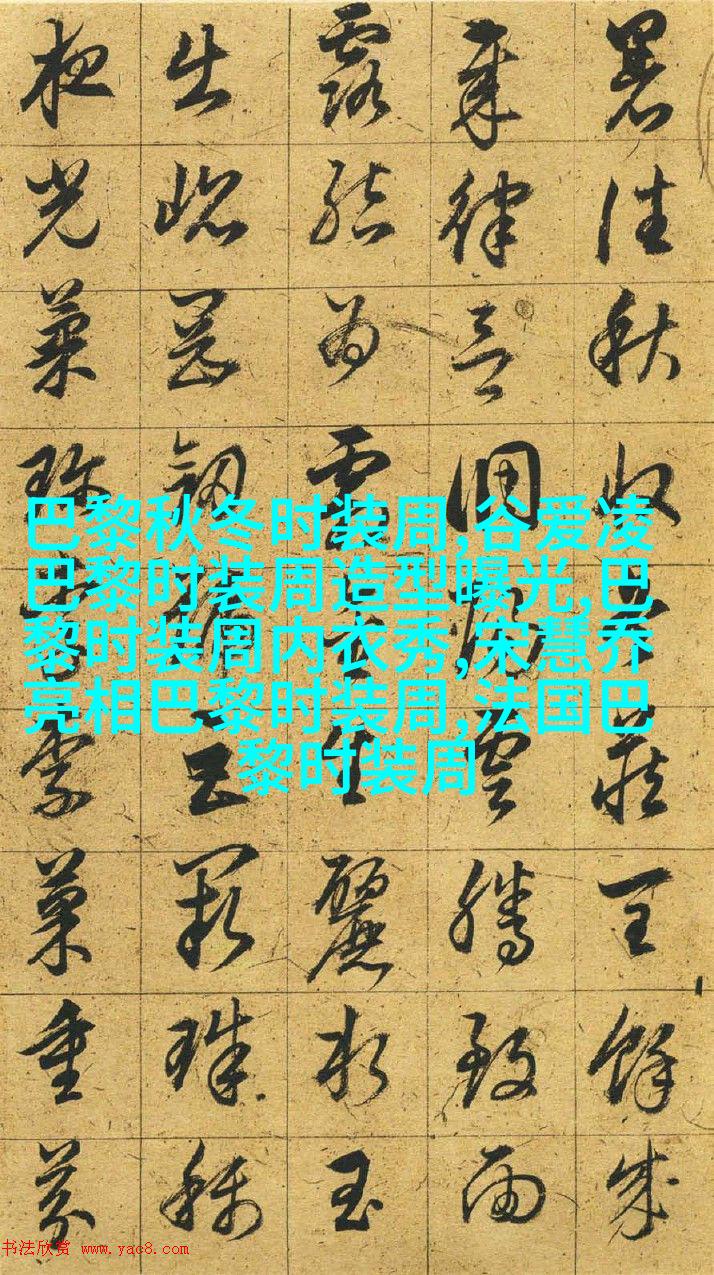 暑往秋收冬藏閏餘成
歲律呂調陽雲騰致雨
露結為霜金生麗水玉
出崑崗劍號巨闕珠稱
夜光菓珍李柰菜重芥
巴黎秋冬时装周,谷爱凌
巴黎时装周造型曝光,巴
黎时装周内衣秀,宋慧乔
亮相巴黎时装周,法国巴
黎时装周
书法欣赏 www.yac8.com